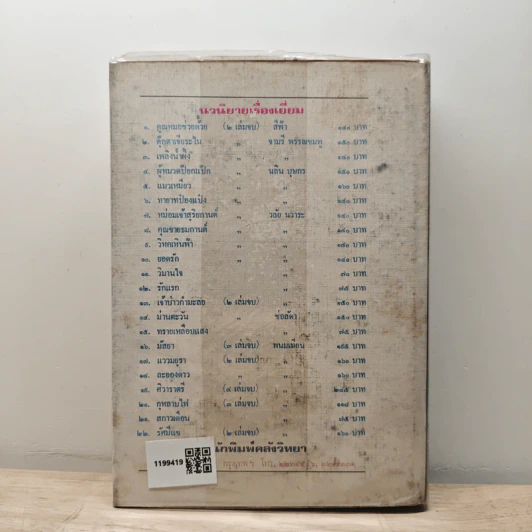 นวนิยายเรื่องเยี่ยม
๑. คุณหมอช่วยด้วย (๒ เล่มจบ) สีฟ้า ๑๔๐ บาท
๒. " " ๑๕๐ บาท
๓. เพลิงน้ำผึ้ง " " ๑๔๐ บาท
๔. ผู้หมวดป๊อกแป๊ก " นลิน บุษกร ๑๕๐ บาท
๕. แมวเหมียว " " ๑๖๐ บาท
๖. ทายาทป๋องแป๋ง " " บาท
๗. หม่อมเจ้าสุริยกานต์ " วลัย นวาระ ๑๔๐ บาท
๘. คุณชายรมกานต์ " " ๑๔๐ บาท
๙. วิหคเหินฟ้า " " ๑๕๐ บาท
๑๐. ยอดรัก " " บาท
๑๑. วิมานใจ " ๗๐ บาท
๑๒. รักแรก " ๗๕ บาท
๑๓. เจ้าบ่าวกำมะลอ (๒ เล่มจบ) " ๑๕๐ บาท
๑๔. ม่านตะวัน " ช่อลัดา ๑๕๐ บาท
๑๕. ทรายเหลือบแสง " ๗๕ บาท
๑๖. มัสยา (๓ เล่มจบ) พนมเทียน ๑๙๕ บาท
๑๗. แววมยุรา (๒ เล่มจบ) " ๑๖๐ บาท
๑๘. ละอองดาว " " ๑๖๐ บาท
๑๙. ศิวาราตรี " บาท
๒๐. กุหลาบไฟ (๓ เล่มจบ) " บาท
๒๑. สกาวเดือน " ๗๕ บาท
๒๒. รัศมีแข (๒ เล่มจบ) " ๑๖๐ บาท
นักพิมพ์คลังวิทยา
กรุงเทพฯ โทร.
1199419